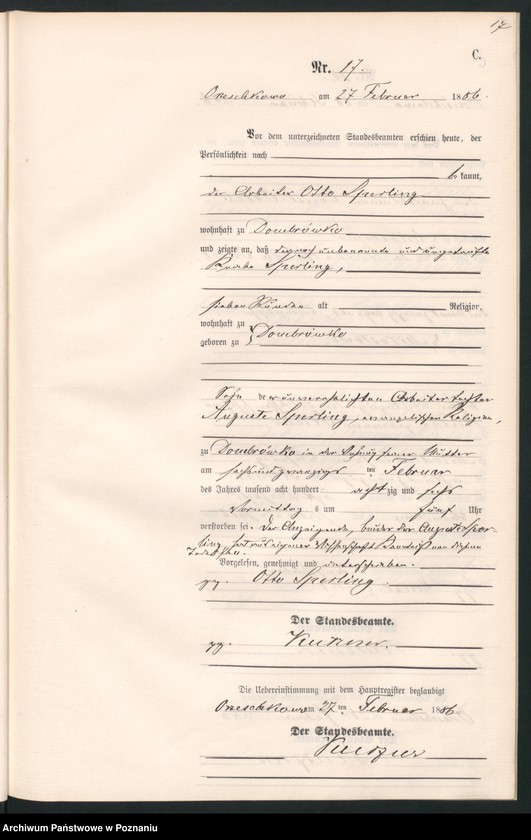 17
C.
Nr. 17.
Oreschkowo am 27 Februar 1886.
Vor dem unterzeichneten Standesbeamten erschien heute, der
Persönlichkeit nach
be kannt,
der Arbeiter Otto Sperling
wohnhaft zu Dombrówko
und zeigte an, daß der noch unbenannte und ungetaufte
Knabe Sperling,
sieben Stunden alt Religion,
wohnhaft zu
geboren zu Dombrówko
Sohn der unverehelichten Arbeitertochter
Auguste Sperling, evangelischer Religion,
zu Dombrówko in der Wohnung seiner Mutter
am sechsundzwanzigsten Februar
des Jahres tausend acht hundert achtzig und sechs
Vormittags um fünf Uhr
verstorben sei. Der Anzeigende, Bruder der Auguste Sper-
ling, hat aus eigener Wissenschaft von diesem
Todesfall.
Vorgelesen, genehmigt und unterschrieben.
gez. Otto Sperling.
Der Standesbeamte.
gez.
Die Uebereinstimmung mit dem Hauptregister beglaubigt
Oreschkowo am 27 ten Februar 1886
Der Standesbeamte.
Archiwum Państwowe w Poznaniu